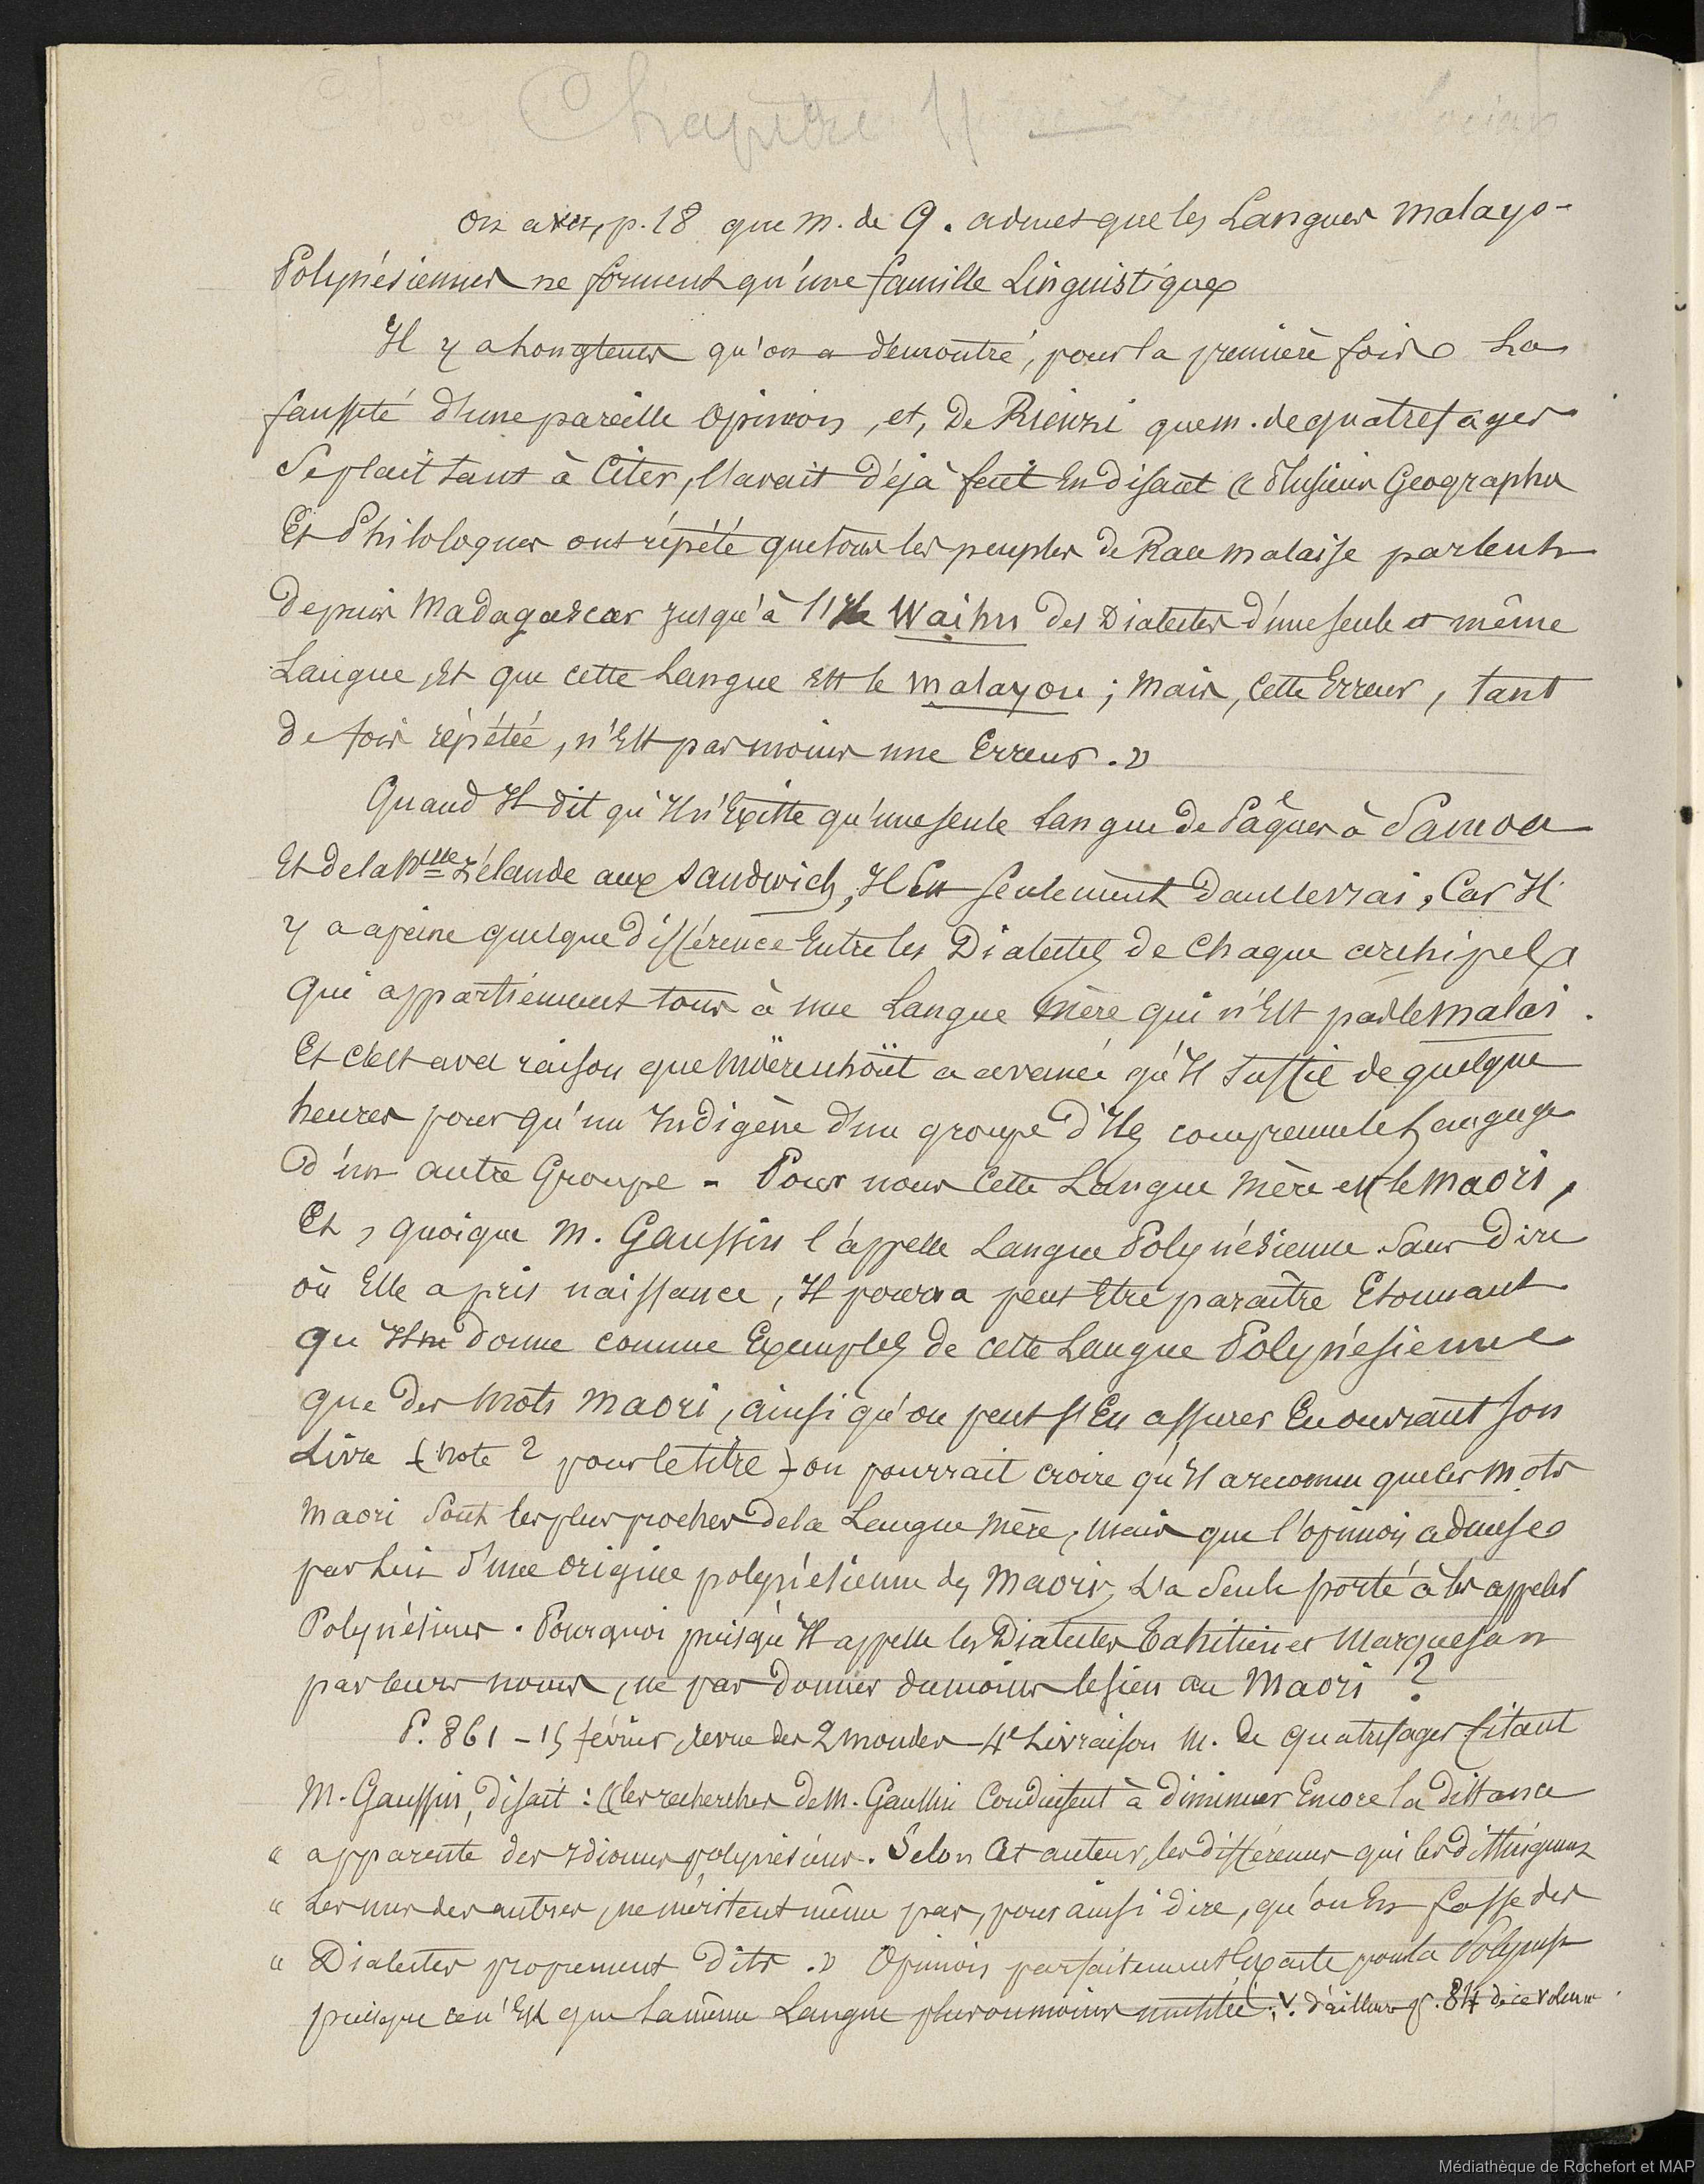 Chapitre 11
On a vu, p. 18 que m. de Q. admet que les Langues malayo-
Polynésiennes ne forment qu'une famille Linguistique
Il y a Longtems qu'on a démontré, pour la première fois La
fausseté d'une pareille opinion, et, De Rienzi que m. de quatrefages
Se plait tant à Citer, l'avait déjà fait En disant « Plusieurs Geographes
Et Philologues ont répété que tous les peuples de Race malaise parlent
Depuis Madagascar jusqu'à l'Ile Waihu des Dialectes d'une seule et même
Langue, Et que cette Langue Est le malayou ; mais, cette Erreur, tant
de fois répétée, n'Est pas moins une Erreur. »
Quand Il dit qu'Il n'Existe qu'une seule Langue de Pâques à Samoa
Et de la Nlle Zélande aux Sandwich, Il Est seulement dans le vrai, Car Il
y a a peine quelque différence Entre les Dialectes de Chaque archipel
Qui appartiennent tous à une Langue Mère qui n'Est pas le malai.
Et c'Est avec raison que Moërenhoüt a avancé qu'Il suffit de quelque
heures pour qu'un Indigène d'un groupe d'Iles comprenne le Langage
D'un autre Groupe - Pour nous Cette Langue Mère est le Maori,
Et, quoique M. Gaussin l'appelle Langue Polynésienne Sans Dire
où Elle a pris naissance, Il pourra peut Etre paraître Etonnant
qu'Il ne donne comme Exemples de cette Langue Polynésienne
que Des Mots Maori, ainsi qu'on peut s'En assurer En ouvrant Son
Livre (note 2 pour le titre) on pourrait croire qu'Il a reconnu que les Mots
Maori Sont les plus proches de la Langue Mère, mais que l'opinion admise
par Lui d'une origine polynésienne des Maoris, L'a Seule porté à les appeler
Polynésiens. Pourquoi puisqu'Il appelle les Dialectes Tahitien et Marquesan
par leurs noms, ne pas Donner du moins le sien au Maori ?
P. 861 - 15 février, revue des 2 mondes - 4e Livraison M. de quatrefages Citant
M. Gaussin, disait : « les recherches de M. Gaussin Conduisent à diminuer Encore la distance
« apparente des Idiomes polynésiens. Selon Cet auteur, les différences qui les distinguent
« Les uns des autres, ne méritent même pas, pour ainsi dire, qu'on En fasse des
« Dialectes proprement dits. » Opinion parfaitement Exacte pour la Polynésie
puisque ce n'Est que la même Langue plus ou moins mutilée. V. d'ailleurs p. 84 de ce volume.
Médiathèque de Rochefort et MAP